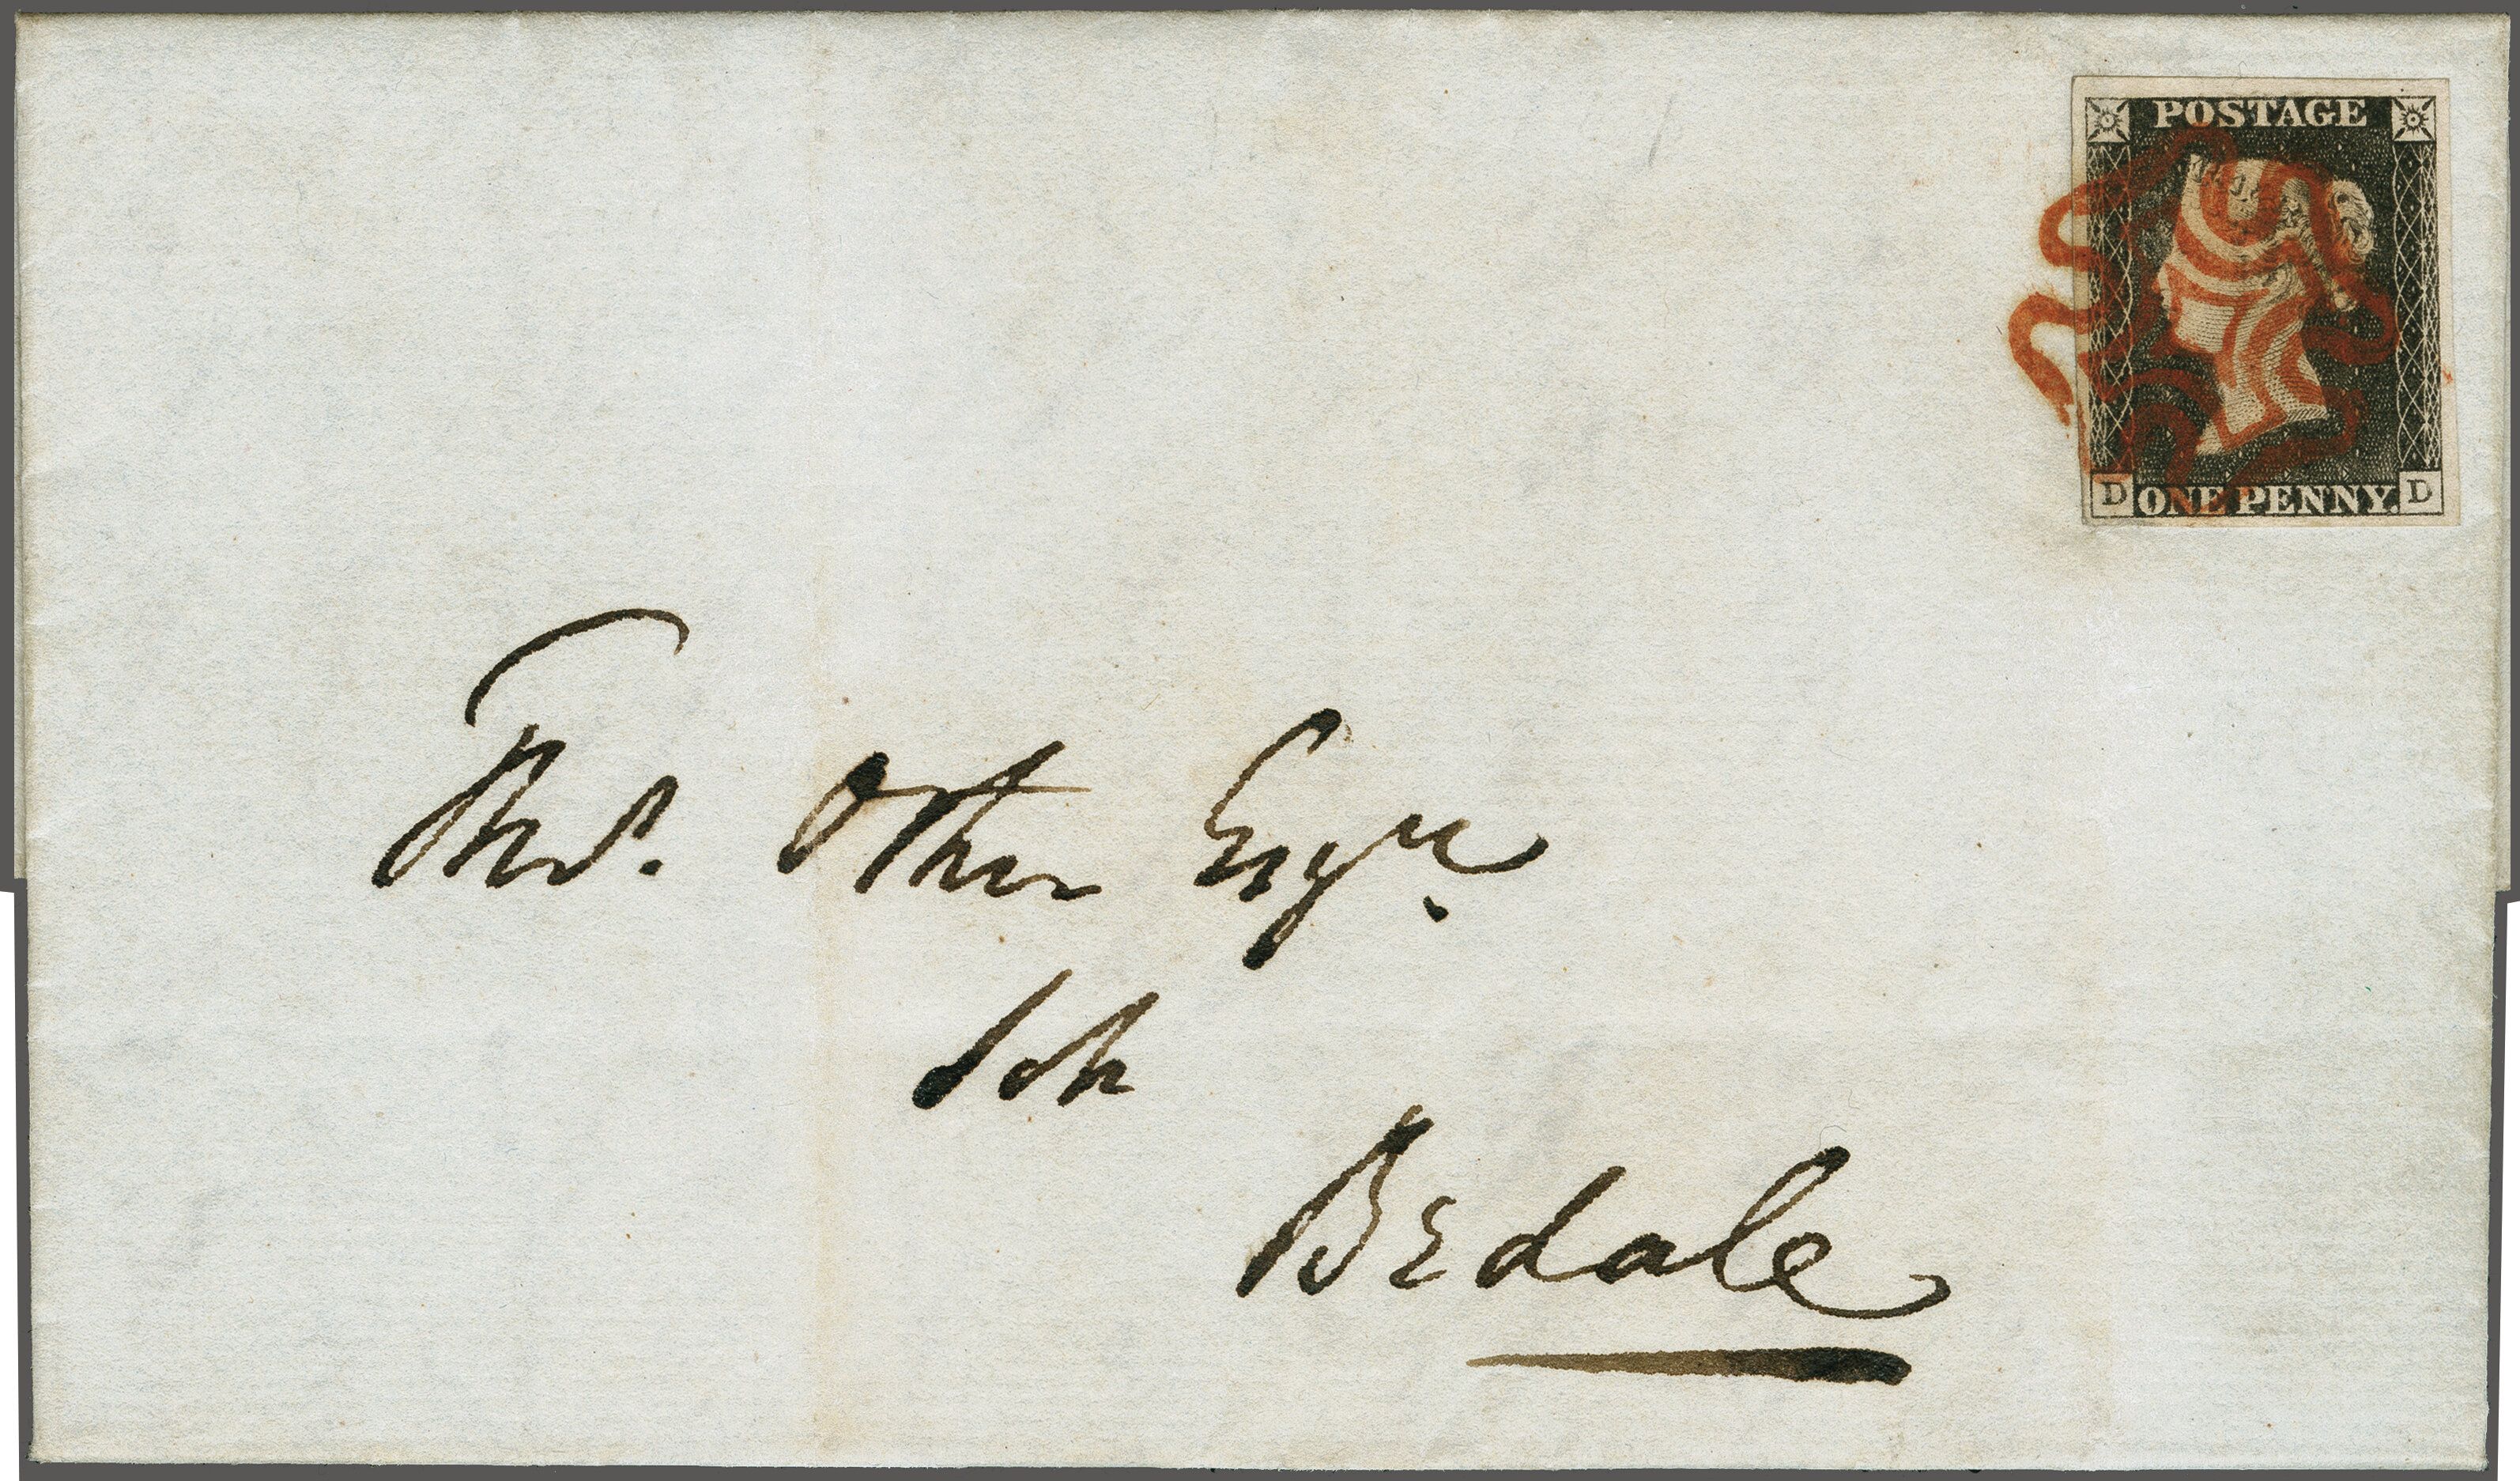 POSTAGE
D ONE PENNY. D
Thos. Other Esqre.
Solr
Bedale